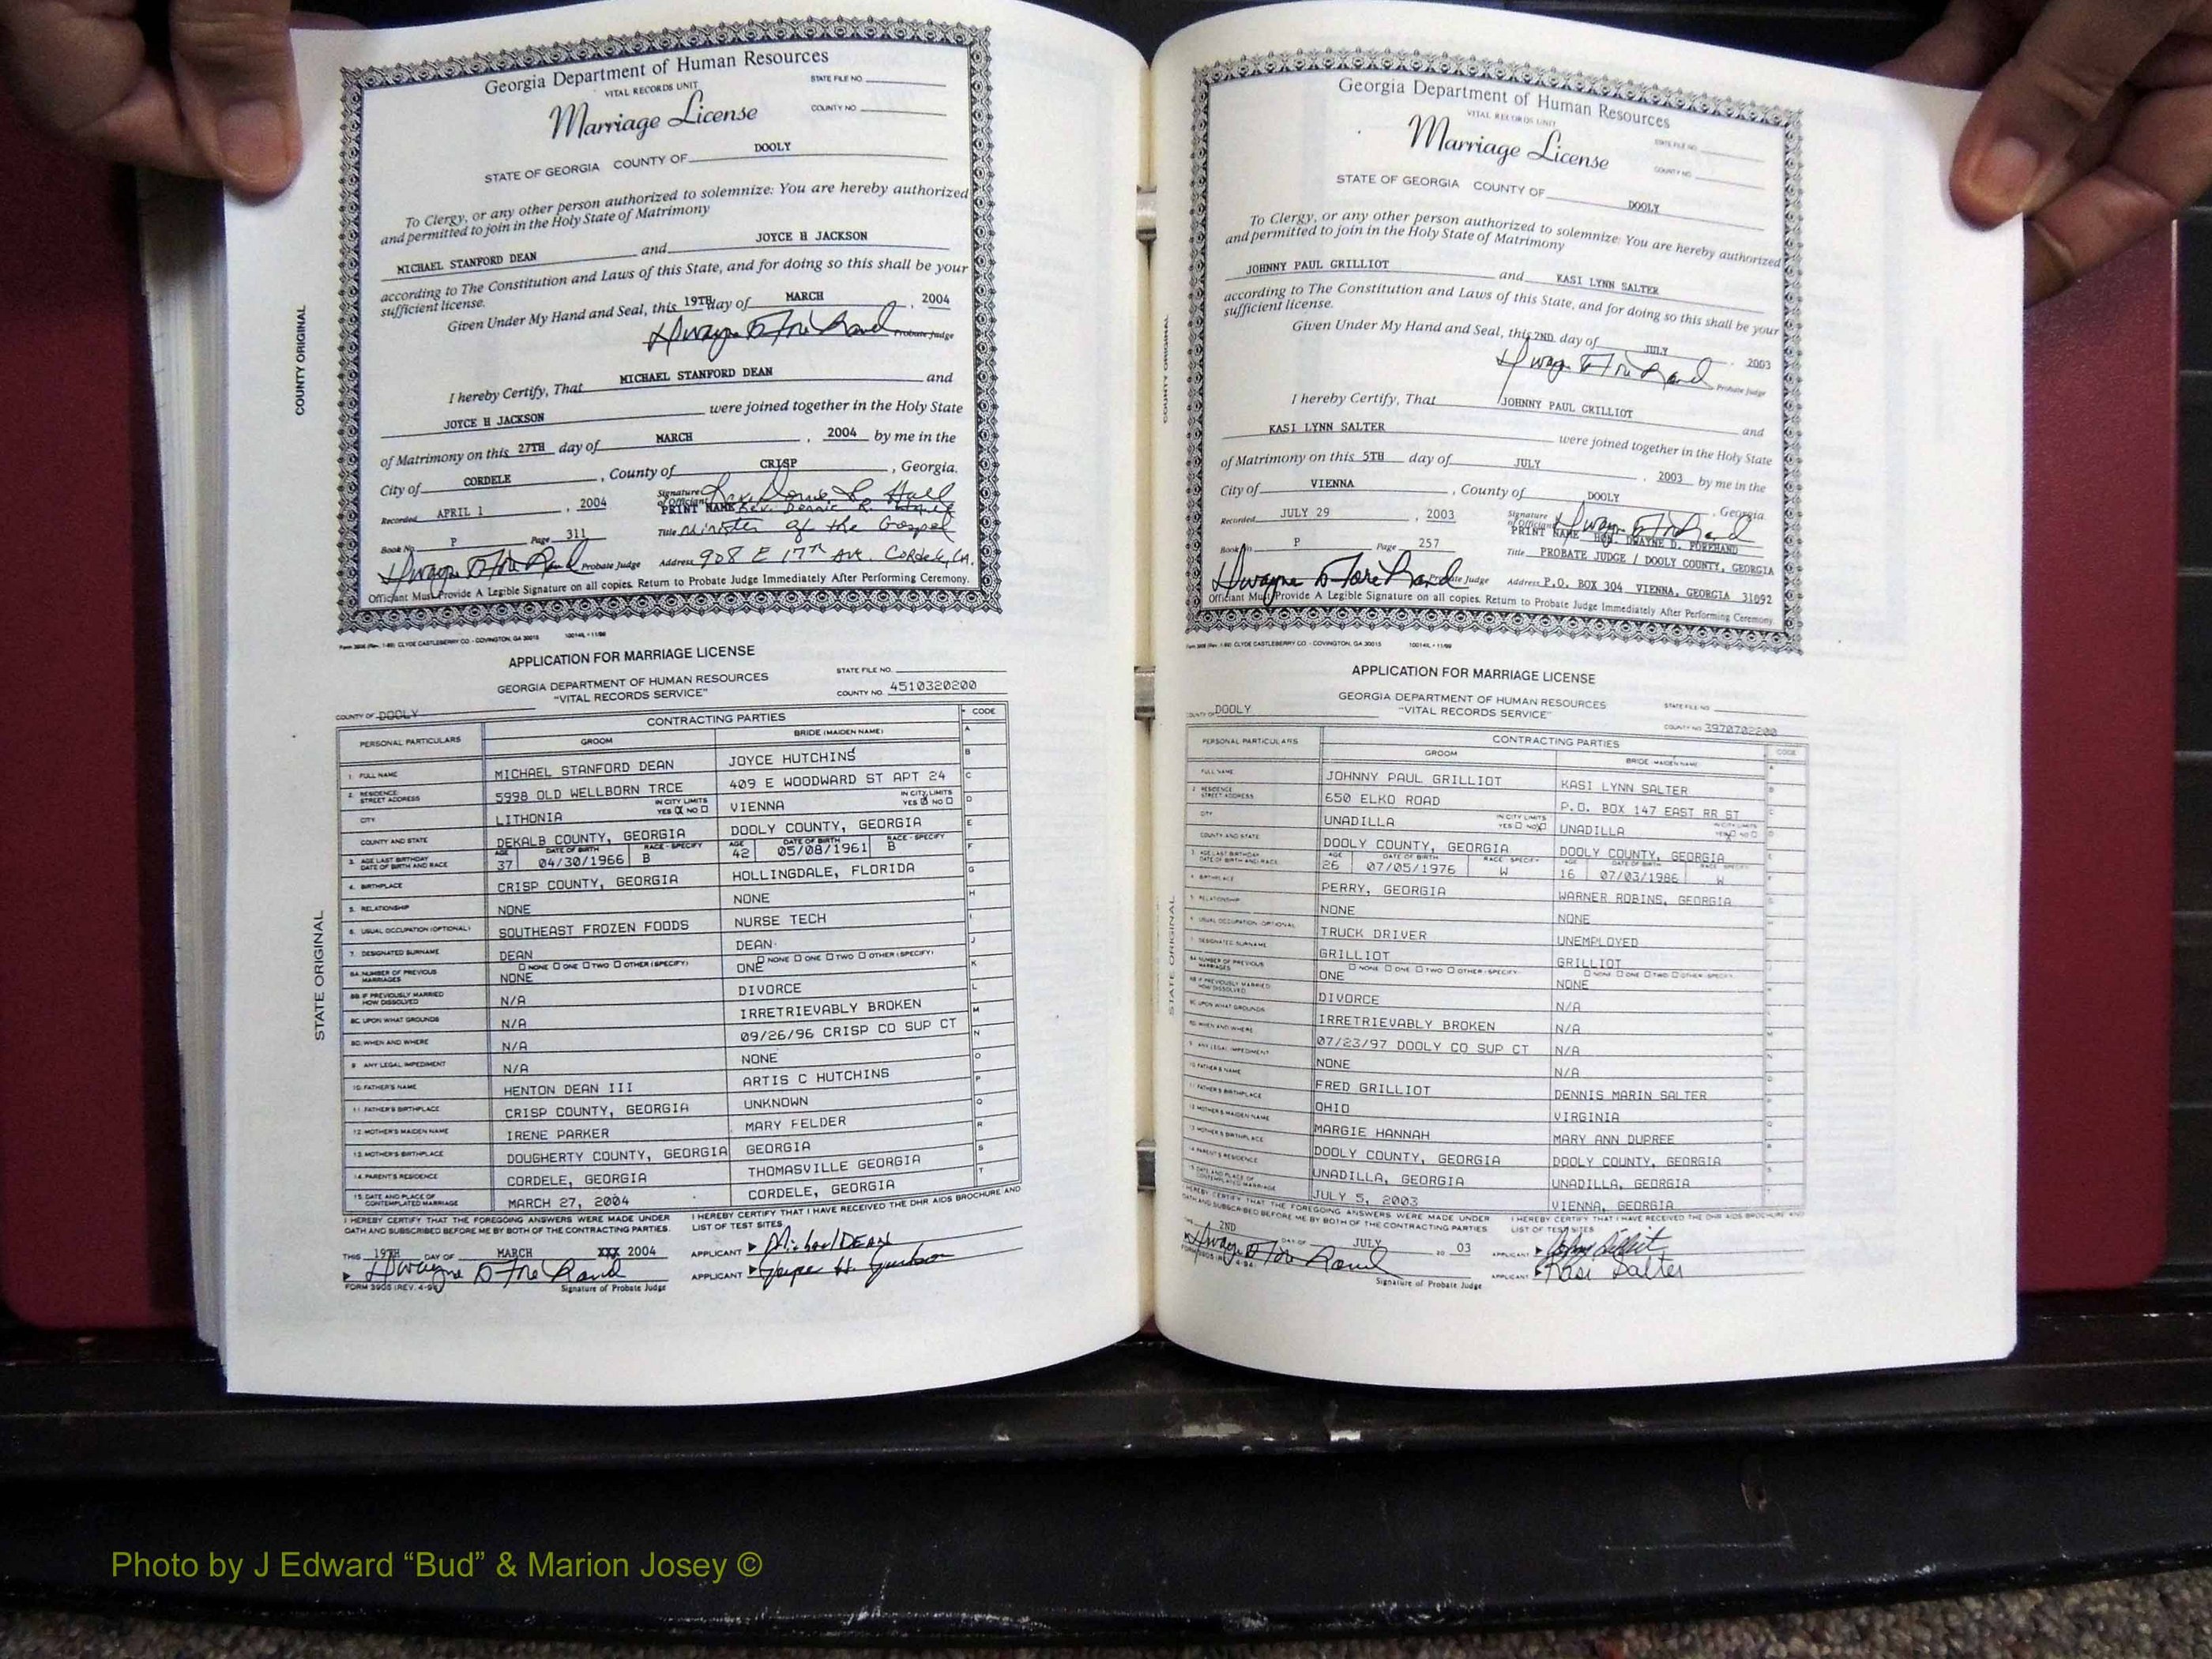 Georgia Department of Human Resources
VITAL RECORDS UNIT
STATE FILE NO.
Marriage License
COUNTY NO.
STATE OF GEORGIA COUNTY OF DOOLY
To Clergy, or any other person authorized to solemnize: You are hereby authorized
and permitted to join in the Holy State of Matrimony
MICHAEL STANFORD DEAN and JOYCE H JACKSON
according to The Constitution and Laws of this State, and for doing so this shall be your
sufficient license.
Given Under My Hand and Seal, this 19TH day of MARCH , 2004
Probate Judge
I hereby Certify, That MICHAEL STANFORD DEAN and
JOYCE H JACKSON were joined together in the Holy State
of Matrimony on this 27TH day of MARCH , 2004 by me in the
City of CORDELE , County of CRISP , Georgia.
Recorded APRIL 1 , 2004 Signature of Officiant
PRINT NAME
Book No. P Page 311 Title Minister of the Gospel
Dwayne D Forehand Probate Judge Address 908 E 17TH Ave. Cordele, GA.
Officiant Must Provide A Legible Signature on all copies. Return to Probate Judge Immediately After Performing Ceremony.
COUNTY ORIGINAL
Form 3906 (Rev. 1-89) CLYDE CASTLEBERRY CO. - COVINGTON, GA 30015
APPLICATION FOR MARRIAGE LICENSE
GEORGIA DEPARTMENT OF HUMAN RESOURCES
"VITAL RECORDS SERVICE"
STATE FILE NO.
COUNTY NO. 4510320200
COUNTY OF DOOLY
PERSONAL PARTICULARS CONTRACTING PARTIES CODE
GROOM BRIDE (MAIDEN NAME) A
1. FULL NAME MICHAEL STANFORD DEAN JOYCE HUTCHINS B
2. RESIDENCE STREET ADDRESS 5998 OLD WELLBORN TRCE 409 E WOODWARD ST APT 24 C
CITY LITHONIA IN CITY LIMITS YES NO VIENNA IN CITY LIMITS YES NO D
COUNTY AND STATE DEKALB COUNTY, GEORGIA DOOLY COUNTY, GEORGIA E
3. AGE LAST BIRTHDAY DATE OF BIRTH AND RACE AGE 37 DATE OF BIRTH 04/30/1966 RACE - SPECIFY B AGE 42 DATE OF BIRTH 05/08/1961 RACE - SPECIFY B F
4. BIRTHPLACE CRISP COUNTY, GEORGIA HOLLINGDALE, FLORIDA G
5. RELATIONSHIP NONE NONE H
6. USUAL OCCUPATION (OPTIONAL) SOUTHEAST FROZEN FOODS NURSE TECH I
7. DESIGNATED SURNAME DEAN DEAN J
8A. NUMBER OF PREVIOUS MARRIAGES NONE ONE TWO OTHER (SPECIFY) NONE NONE ONE TWO OTHER (SPECIFY) ONE K
8B. IF PREVIOUSLY MARRIED HOW DISSOLVED N/A DIVORCE L
8C. UPON WHAT GROUNDS N/A IRRETRIEVABLY BROKEN M
8D. WHEN AND WHERE N/A 09/26/96 CRISP CO SUP CT N
9. ANY LEGAL IMPEDIMENT N/A NONE O
10. FATHER'S NAME HENTON DEAN III ARTIS C HUTCHINS P
11. FATHER'S BIRTHPLACE CRISP COUNTY, GEORGIA UNKNOWN Q
12. MOTHER'S MAIDEN NAME IRENE PARKER MARY FELDER R
13. MOTHER'S BIRTHPLACE DOUGHERTY COUNTY, GEORGIA GEORGIA S
14. PARENT'S RESIDENCE CORDELE, GEORGIA THOMASVILLE GEORGIA T
15. DATE AND PLACE OF CONTEMPLATED MARRIAGE MARCH 27, 2004 CORDELE, GEORGIA
I HEREBY CERTIFY THAT THE FOREGOING ANSWERS WERE MADE UNDER
OATH AND SUBSCRIBED BEFORE ME BY BOTH OF THE CONTRACTING PARTIES.
I HEREBY CERTIFY THAT I HAVE RECEIVED THE DHR AIDS BROCHURE AND
LIST OF TEST SITES.
THIS 19TH DAY OF MARCH XXX 2004
APPLICANT Michael DEAN
Dwayne D Forehand
APPLICANT Joyce H. Jackson
FORM 3905 (REV. 4-94) Signature of Probate Judge
STATE ORIGINAL
Georgia Department of Human Resources
VITAL RECORDS UNIT
Marriage License
STATE FILE NO.
COUNTY NO.
STATE OF GEORGIA COUNTY OF DOOLY
To Clergy, or any other person authorized to solemnize: You are hereby authorized
and permitted to join in the Holy State of Matrimony
JOHNNY PAUL GRILLIOT and KASI LYNN SALTER
according to The Constitution and Laws of this State, and for doing so this shall be your
sufficient license.
Given Under My Hand and Seal, this 2ND day of JULY , 2003
Probate Judge
I hereby Certify, That JOHNNY PAUL GRILLIOT and
KASI LYNN SALTER were joined together in the Holy State
of Matrimony on this 5TH day of JULY , 2003 by me in the
City of VIENNA , County of DOOLY , Georgia
Recorded JULY 29 , 2003 Signature of Officiant
PRINT NAME HON. DWAYNE D. FOREHAND
Book No. P Page 257 Title PROBATE JUDGE / DOOLY COUNTY, GEORGIA
Dwayne D Forehand Probate Judge Address P.O. BOX 304 VIENNA, GEORGIA 31092
Officiant Must Provide A Legible Signature on all copies. Return to Probate Judge Immediately After Performing Ceremony.
COUNTY ORIGINAL
CLYDE CASTLEBERRY CO. - COVINGTON, GA 30015
APPLICATION FOR MARRIAGE LICENSE
GEORGIA DEPARTMENT OF HUMAN RESOURCES
"VITAL RECORDS SERVICE"
STATE FILE NO.
COUNTY NO. 3970702200
COUNTY OF DOOLY
PERSONAL PARTICULARS CONTRACTING PARTIES CODE
GROOM BRIDE (MAIDEN NAME)
FULL NAME JOHNNY PAUL GRILLIOT KASI LYNN SALTER
2. RESIDENCE STREET ADDRESS 650 ELKO ROAD P.O. BOX 147 EAST RR ST
CITY UNADILLA IN CITY LIMITS YES NO UNADILLA IN CITY LIMITS YES NO
COUNTY AND STATE DOOLY COUNTY, GEORGIA DOOLY COUNTY, GEORGIA
3. AGE LAST BIRTHDAY DATE OF BIRTH AND RACE AGE 26 DATE OF BIRTH 07/05/1976 RACE - SPECIFY W AGE 16 DATE OF BIRTH 07/03/1986 RACE - SPECIFY W
4. BIRTHPLACE PERRY, GEORGIA WARNER ROBINS, GEORGIA
5. RELATIONSHIP NONE NONE
6. USUAL OCCUPATION (OPTIONAL) TRUCK DRIVER UNEMPLOYED
7. DESIGNATED SURNAME GRILLIOT GRILLIOT
8A. NUMBER OF PREVIOUS MARRIAGES NONE ONE TWO OTHER (SPECIFY) ONE NONE ONE TWO OTHER (SPECIFY) NONE
8B. IF PREVIOUSLY MARRIED HOW DISSOLVED DIVORCE N/A
8C. UPON WHAT GROUNDS IRRETRIEVABLY BROKEN N/A
8D. WHEN AND WHERE 07/23/97 DOOLY CO SUP CT N/A
9. ANY LEGAL IMPEDIMENT NONE N/A
10. FATHER'S NAME FRED GRILLIOT DENNIS MARIN SALTER
11. FATHER'S BIRTHPLACE OHIO VIRGINIA
12. MOTHER'S MAIDEN NAME MARGIE HANNAH MARY ANN DUPREE
13. MOTHER'S BIRTHPLACE DOOLY COUNTY, GEORGIA DOOLY COUNTY, GEORGIA
14. PARENT'S RESIDENCE UNADILLA, GEORGIA UNADILLA, GEORGIA
15. DATE AND PLACE OF CONTEMPLATED MARRIAGE JULY 5, 2003 VIENNA, GEORGIA
I HEREBY CERTIFY THAT THE FOREGOING ANSWERS WERE MADE UNDER
OATH AND SUBSCRIBED BEFORE ME BY BOTH OF THE CONTRACTING PARTIES
I HEREBY CERTIFY THAT I HAVE RECEIVED THE DHR AIDS BROCHURE AND
LIST OF TEST SITES
THIS 2ND DAY OF JULY 20 03
APPLICANT
Dwayne D Forehand
APPLICANT Kasi Salter
FORM 3905 (REV. 4-94) Signature of Probate Judge
STATE ORIGINAL
Photo by J Edward “Bud” & Marion Josey ©